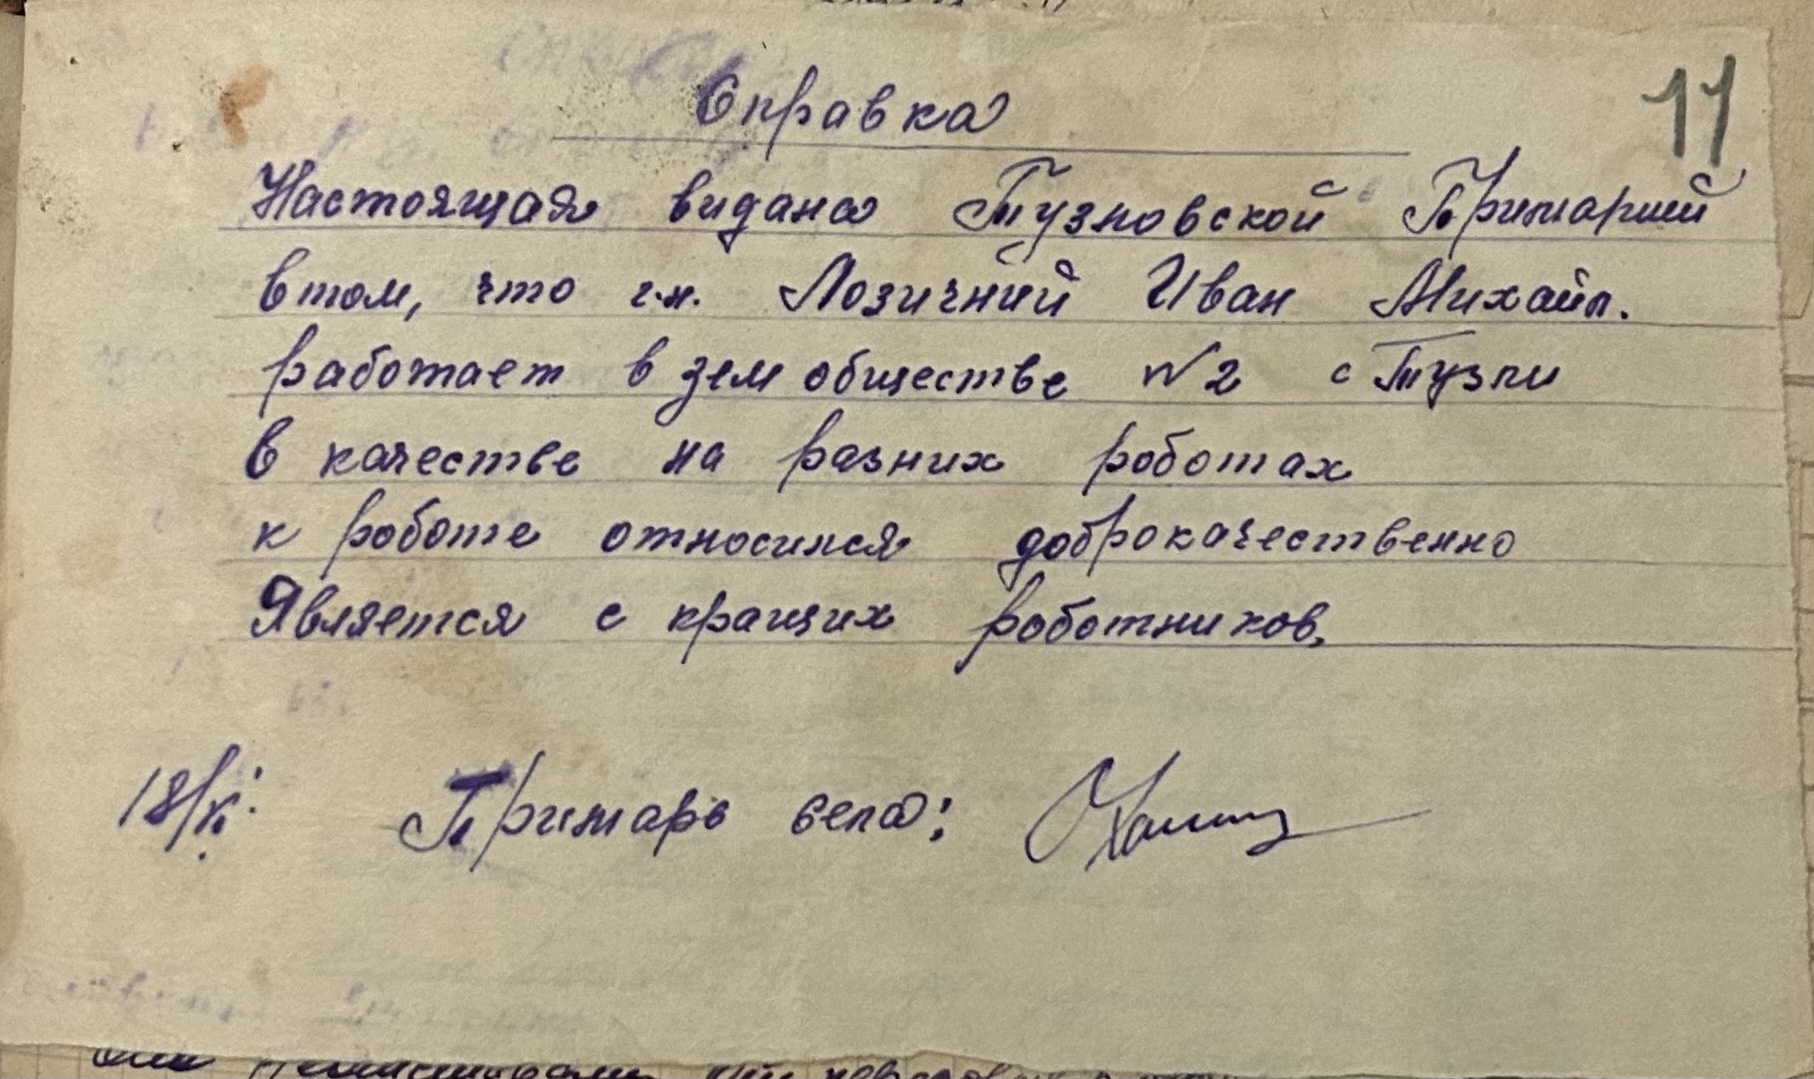 11
Справка
Настоящая видана Тузловской Примарией
втом, что г.н. Лозичний Иван Михайл.
работает в зем обществе №2 с Тузли
в качестве на разних роботах
к роботе относился доброкачественно
Является с кращих роботников.
18/XI. Примарь села: